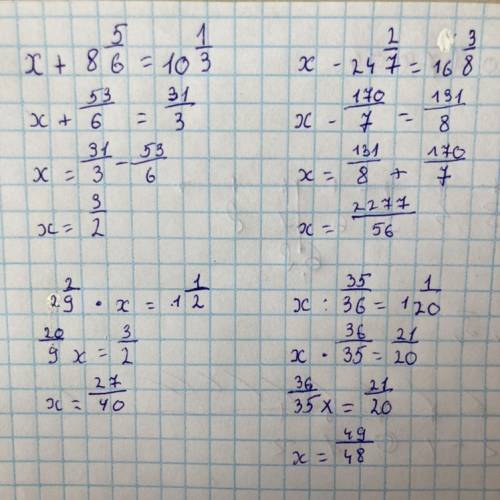 x + 8 5/6 = 10 1/3
x + 53/6 = 31/3
x = 31/3 - 53/6
x = 3/2
x - 24 2/7 = 16 3/8
x - 170/7 = 131/8
x = 131/8 + 170/7
x = 2277/56
2 2/9 · x = 1 1/2
20/9 x = 3/2
x = 27/40
x : 35/36 = 1 1/20
x · 36/35 = 21/20
36/35 x = 21/20
x = 49/48